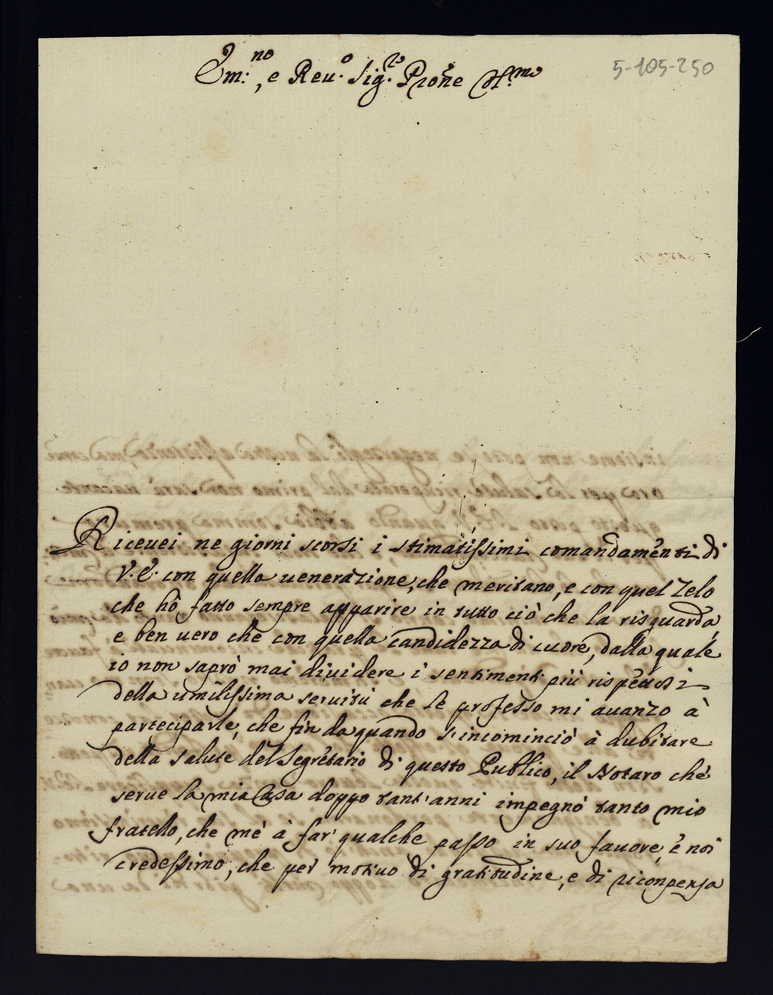 Em:no, e Reu.o Sig.re Pro͠ne Col.mo
5-105-250
Riceuei ne giorni scorsi i stimatissimi comandamenti di
V. E. con quella uenerazione, che meritano, e con quel Zelo
che hò fatto sempre apparire in tutto ciò che la risguarda
e ben uero che con quella candidezza di cuore, dalla quale
io non saprò mai diuidere i sentimenti più rispettosi
della umilissima seruitù che le professo mi auanzo à
parteciparle, che fin da quando s'incominciò à dubitare
della salute del Segretario di questo Publico, il Notaro che
serue la mia Casa doppo tant'anni impegnò tanto mio
fratello, che mè à far' qualche passo in suo fauore, e noi
credessimo, che per motiuo di gratitudine, e di riconpensa